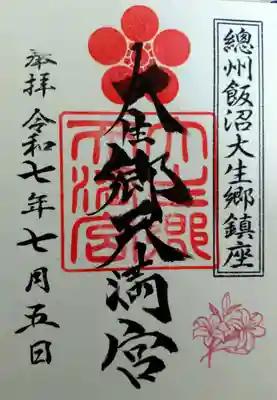 總州飯沼大生郷鎮座
大生郷天満宮
奉拝
令和七年七月五日
大生郷天満宮